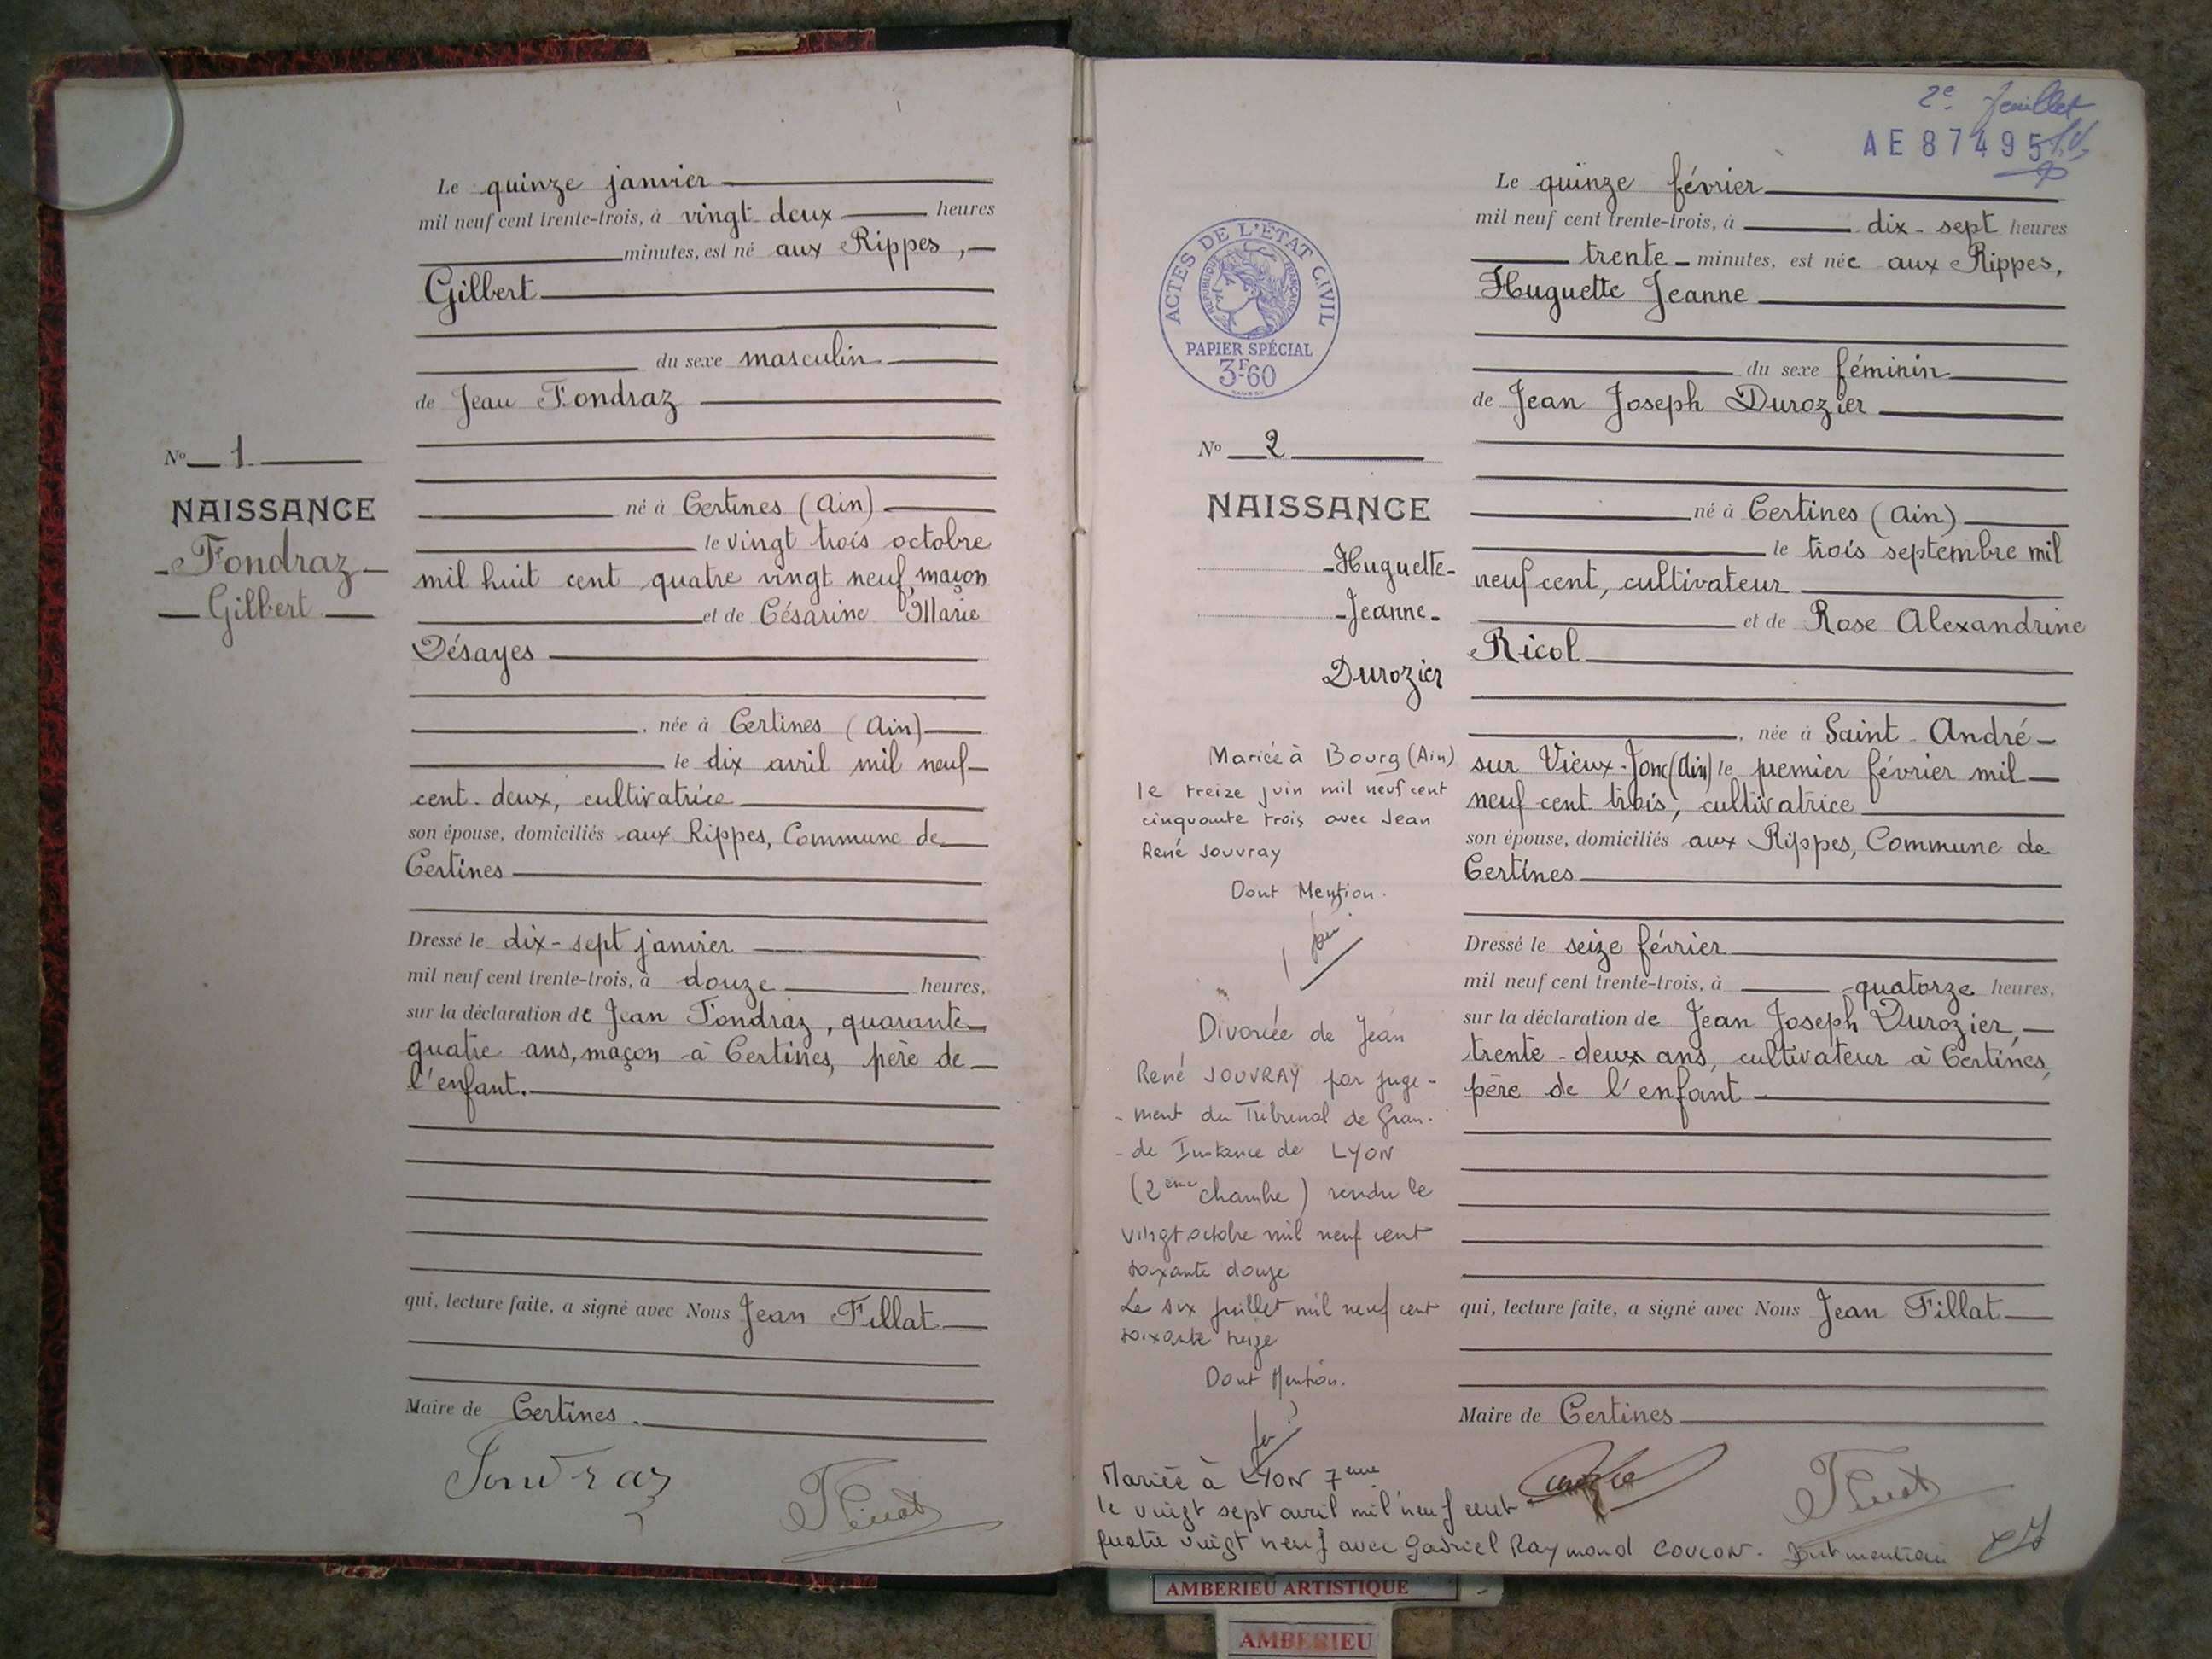 Le quinze janvier
mil neuf cent trente-trois, à vingt deux heures
minutes, est né aux Rippes,
Gilbert
du sexe masculin
de Jean Fondraz
No 1
NAISSANCE
Fondraz
Gilbert
né à Certines (Ain)
le vingt trois octobre
mil huit cent quatre vingt neuf, maçon
et de Césarine Marie
Désayes
, née à Certines (Ain)
le dix avril mil neuf
cent-deux, cultivatrice
son épouse, domiciliés aux Rippes, Commune de
Certines
Dressé le dix-sept janvier
mil neuf cent trente-trois, à douze heures,
sur la déclaration de Jean Fondraz, quarante
quatre ans, maçon à Certines, père de
l'enfant.
qui, lecture faite, a signé avec Nous Jean Fillat
Maire de Certines.
Fondraz
2e feuillet
AE 87495
ACTES DE L'ÉTAT CIVIL
RÉPUBLIQUE FRANÇAISE
PAPIER SPÉCIAL
3F60
Le quinze février
mil neuf cent trente-trois, à dix-sept heures
trente minutes, est née aux Rippes,
Huguette Jeanne
du sexe féminin
de Jean Joseph Durozier
No 2
NAISSANCE
Huguette
Jeanne
Durozier
né à Certines (Ain)
le trois septembre mil
neuf cent, cultivateur
et de Rose Alexandrine
Ricol
, née à Saint-André-
sur Vieux-Jonc (Ain) le premier février mil
neuf cent trois, cultivatrice
son épouse, domiciliés aux Rippes, Commune de
Certines
Dressé le seize février
mil neuf cent trente-trois, à quatorze heures,
sur la déclaration de Jean Joseph Durozier
trente-deux ans, cultivateur à Certines,
père de l'enfant
qui, lecture faite, a signé avec Nous Jean Fillat
Maire de Certines
Mariée à Bourg (Ain)
le treize juin mil neuf cent
cinquante trois avec Jean
René Jouvray
Dont Mention.
Divorcée de Jean
René JOUVRAY par juge-
-ment du Tribunal de Gran-
-de Instance de LYON
(2ème chambre) rendu le
vingt octobre mil neuf cent
soixante douze
Le six juillet mil neuf cent
soixante treize
Dont Mention.
Mariée à LYON 7ème
le vingt sept avril mil neuf cent
quatre vingt neuf avec Gabriel Raymond COUCON. Dont mention
AMBERIEU ARTISTIQUE
AMBERIEU